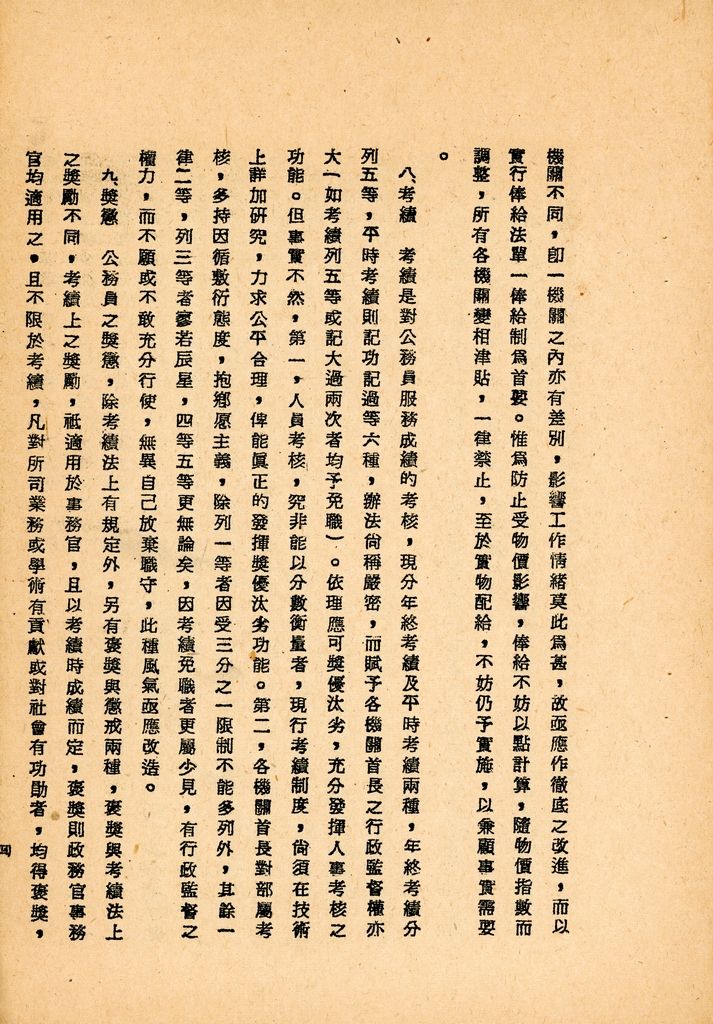 機關不同，卽一機關之內亦有差別，影響工作情緒莫此爲甚，故亟應作徹底之改進，而以
實行俸給法單一俸給制爲首要。惟爲防止受物價影響，俸給不妨以點計算，隨物價指數而
調整，所有各機關變相津貼，一律禁止，至於實物配給，不妨仍予實施，以兼顧事實需要
。
八、考績　考績是對公務員服務成績的考核，現分年終考績及平時考績兩種，年終考績分
列五等，平時考績則記功記過等六種，辦法尙稱嚴密，而賦予各機關首長之行政監督權亦
大一如考績列五等或記大過兩次者均予免職）。依理應可獎優汰劣，充分發揮人事考核之
功能。但事實不然，第一，人員考核，究非能以分數衡量者，現行考績制度，尙須在技術
上詳加研究，力求公平合理，俾能眞正的發揮獎優汰劣功能。第二，各機關首長對部屬考
核，多持因循敷衍態度，抱鄉愿主義，除列一等者因受三分之一限制不能多列外，其餘一
律二等，列三等者寥若辰星，四等五等更無論矣，因考績免職者更屬少見，有行政監督之
權力，而不願或不敢充分行使，無異自己放棄職守，此種風氣亟應改造。
九、獎懲　公務員之獎懲，除考績法上有規定外，另有褒獎與懲戒兩種，褒獎與考績法上
之獎勵不同，考績上之獎勵，祇適用於事務官，且以考績時成績而定，褒獎則政務官事務
官均適用之。且不限於考績，凡對所司業務或學術有貢獻或對社會有功勛者，均得褒獎，
四